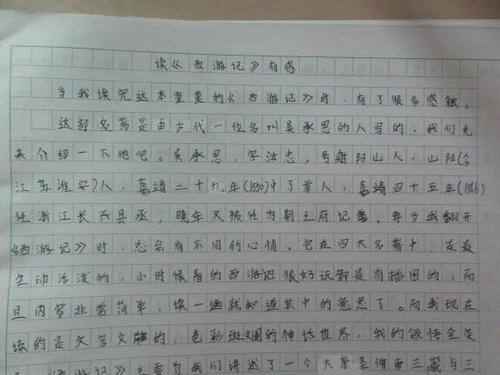 读《西游记》有感
当我读完这本重重的《西游记》时，有了很多感触。
这部名著是由古代一位名叫吴承恩的人写的，我们先
来介绍一下他吧。吴承恩，字汝忠，号射阳山人，山阳(今
江苏淮安)人，嘉靖二十九年(1550)中了举人，嘉靖四十五年(1566)
任浙江长兴县丞，晚年又被任为荆王府纪善。每当我翻开
《西游记》时，总会有不同的心情。它在四大名著中，是最
生动活泼的，小时候看的西游记很好玩都是有插图的，而
且内容非常简单，读一遍就知道其中的意思了。而我现在
读的是文言文的，色彩斑斓的神话世界，我的领悟全变
《西游记》主要为我们讲述了一个大唐圣僧唐三藏与三